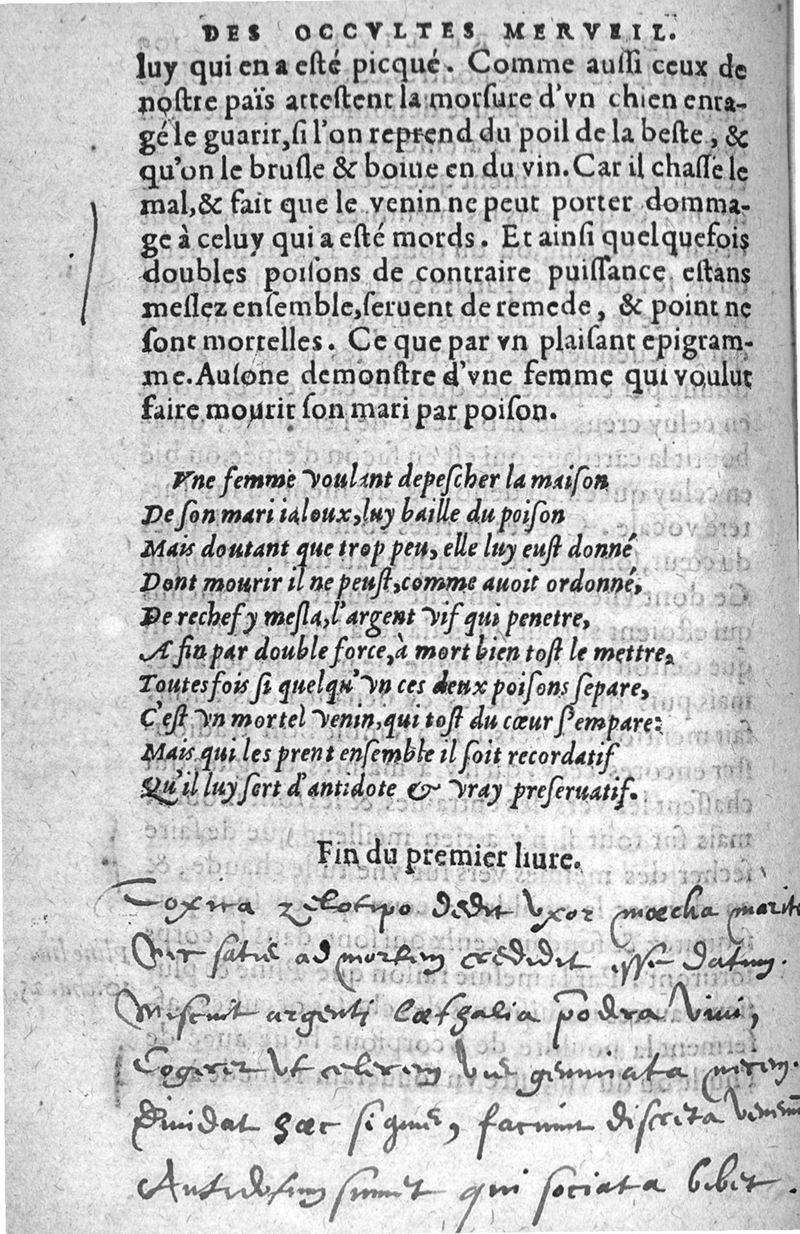 DES OCCVLTES MERVEIL.
luy qui en a eſté picqué. Comme auſſi ceux de
noſtre païs atteſtent la morſure d'vn chien enra-
gé le guarir, ſi l'on reprend du poil de la beſte, &
qu'on le bruſle & boiue en du vin. Car il chaſſe le
mal, & fait que le venin ne peut porter domma-
ge à celuy qui a eſté mords. Et ainſi quelquefois
doubles poiſons de contraire puiſſance eſtans
meſlez enſemble, ſeruent de remede, & point ne
ſont mortelles. Ce que par vn plaiſant epigram-
me. Auſone demonſtre d'vne femme qui voulut
faire mourir ſon mari par poiſon.
Vne femme voulant depeſcher la maiſon
De ſon mari ialoux, luy baille du poiſon
Mais doutant que trop peu, elle luy euſt donné
Dont mourir il ne peuſt, comme auoit ordonné,
De rechef y meſla, l'argent vif qui penetre,
A fin par double force, à mort bien toſt le mettre,
Toutesfois ſi quelqu'vn ces deux poiſons ſepare,
C'eſt vn mortel venin, qui toſt du cœur ſ'empare:
Mais qui les prent enſemble il ſoit recordatif
Qu'il luy ſert d'antidote & vray preſeruatif.
Fin du premier liure.
Toxica zelotipo dedit vxor mœcha marito
Nec satis ad mortem credidit esse datum.
Miscuit argenti lœthalia pondera viui,
Cogeret vt celerem vis geminata necem.
Diuidat hæc siquis, faciunt discreta venenum
Antidotum sumet qui sociata bibet.